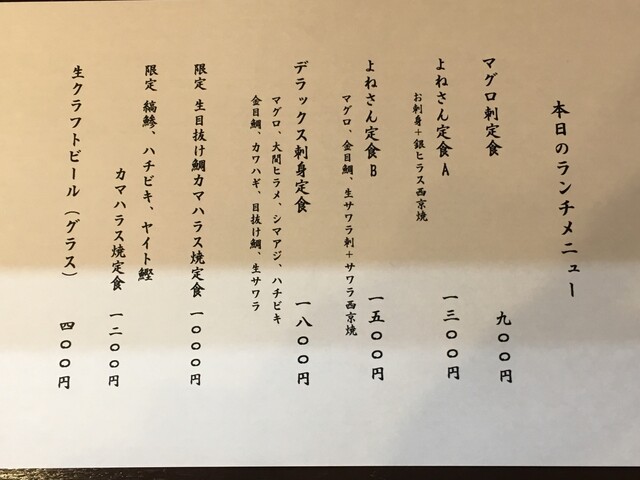 本日のランチメニュー
マグロ刺定食 九〇〇円
よねさん定食A 一三〇〇円
お刺身+銀ヒラス西京焼
よねさん定食B 一五〇〇円
マグロ、金目鯛、生サワラ刺+サワラ西京焼
デラックス刺身定食 一八〇〇円
マグロ、大間ヒラメ、シマアジ、ハチビキ
金目鯛、カワハギ、目抜け鯛、生サワラ
限定 生目抜け鯛カマハラス焼定食 一〇〇〇円
限定 縞鯵、ハチビキ、ヤイト鰹
カマハラス焼定食 一二〇〇円
生クラフトビール(グラス) 四〇〇円